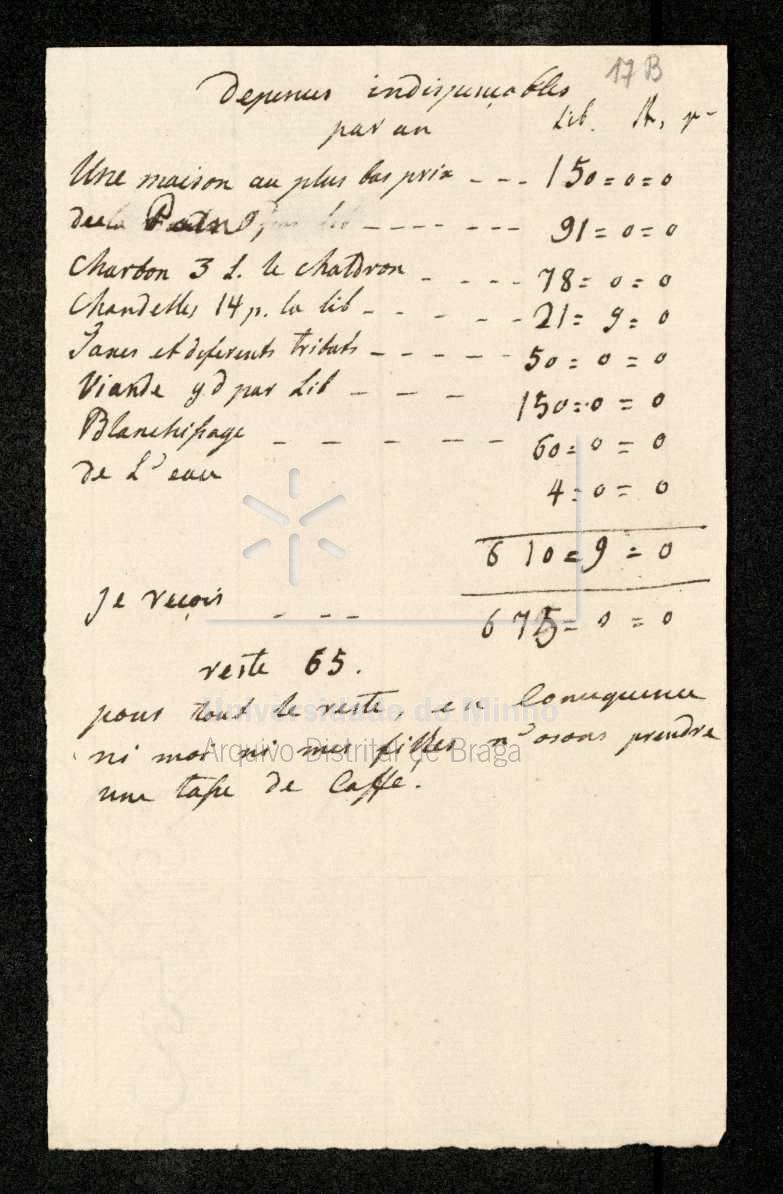 17 B
Depenses indispensables
par an Lib. St, p
Une maison au plus bas prix - - - 150 = 0 = 0
de la Pain - - - - - - - 91 = 0 = 0
Charbon 3 L. le chaldron - - - - 78 = 0 = 0
Chandelles 14 p. la lib - - - - - 21 = 9 = 0
Taxes et diferents tributs - - - - - 50 = 0 = 0
Viande 9 d par Lib - - - 150 = 0 = 0
Blanchissage - - - - - - 60 = 0 = 0
de L'eau 4 = 0 = 0
610 = 9 = 0
Je reçois - - - 675 = 0 = 0
reste 65.
pour tout le reste, en Consequence
ni moi ni mes filles n'osons prendre
une tasse de Caffé.
Universidade do Minho
Arquivo Distrital de Braga